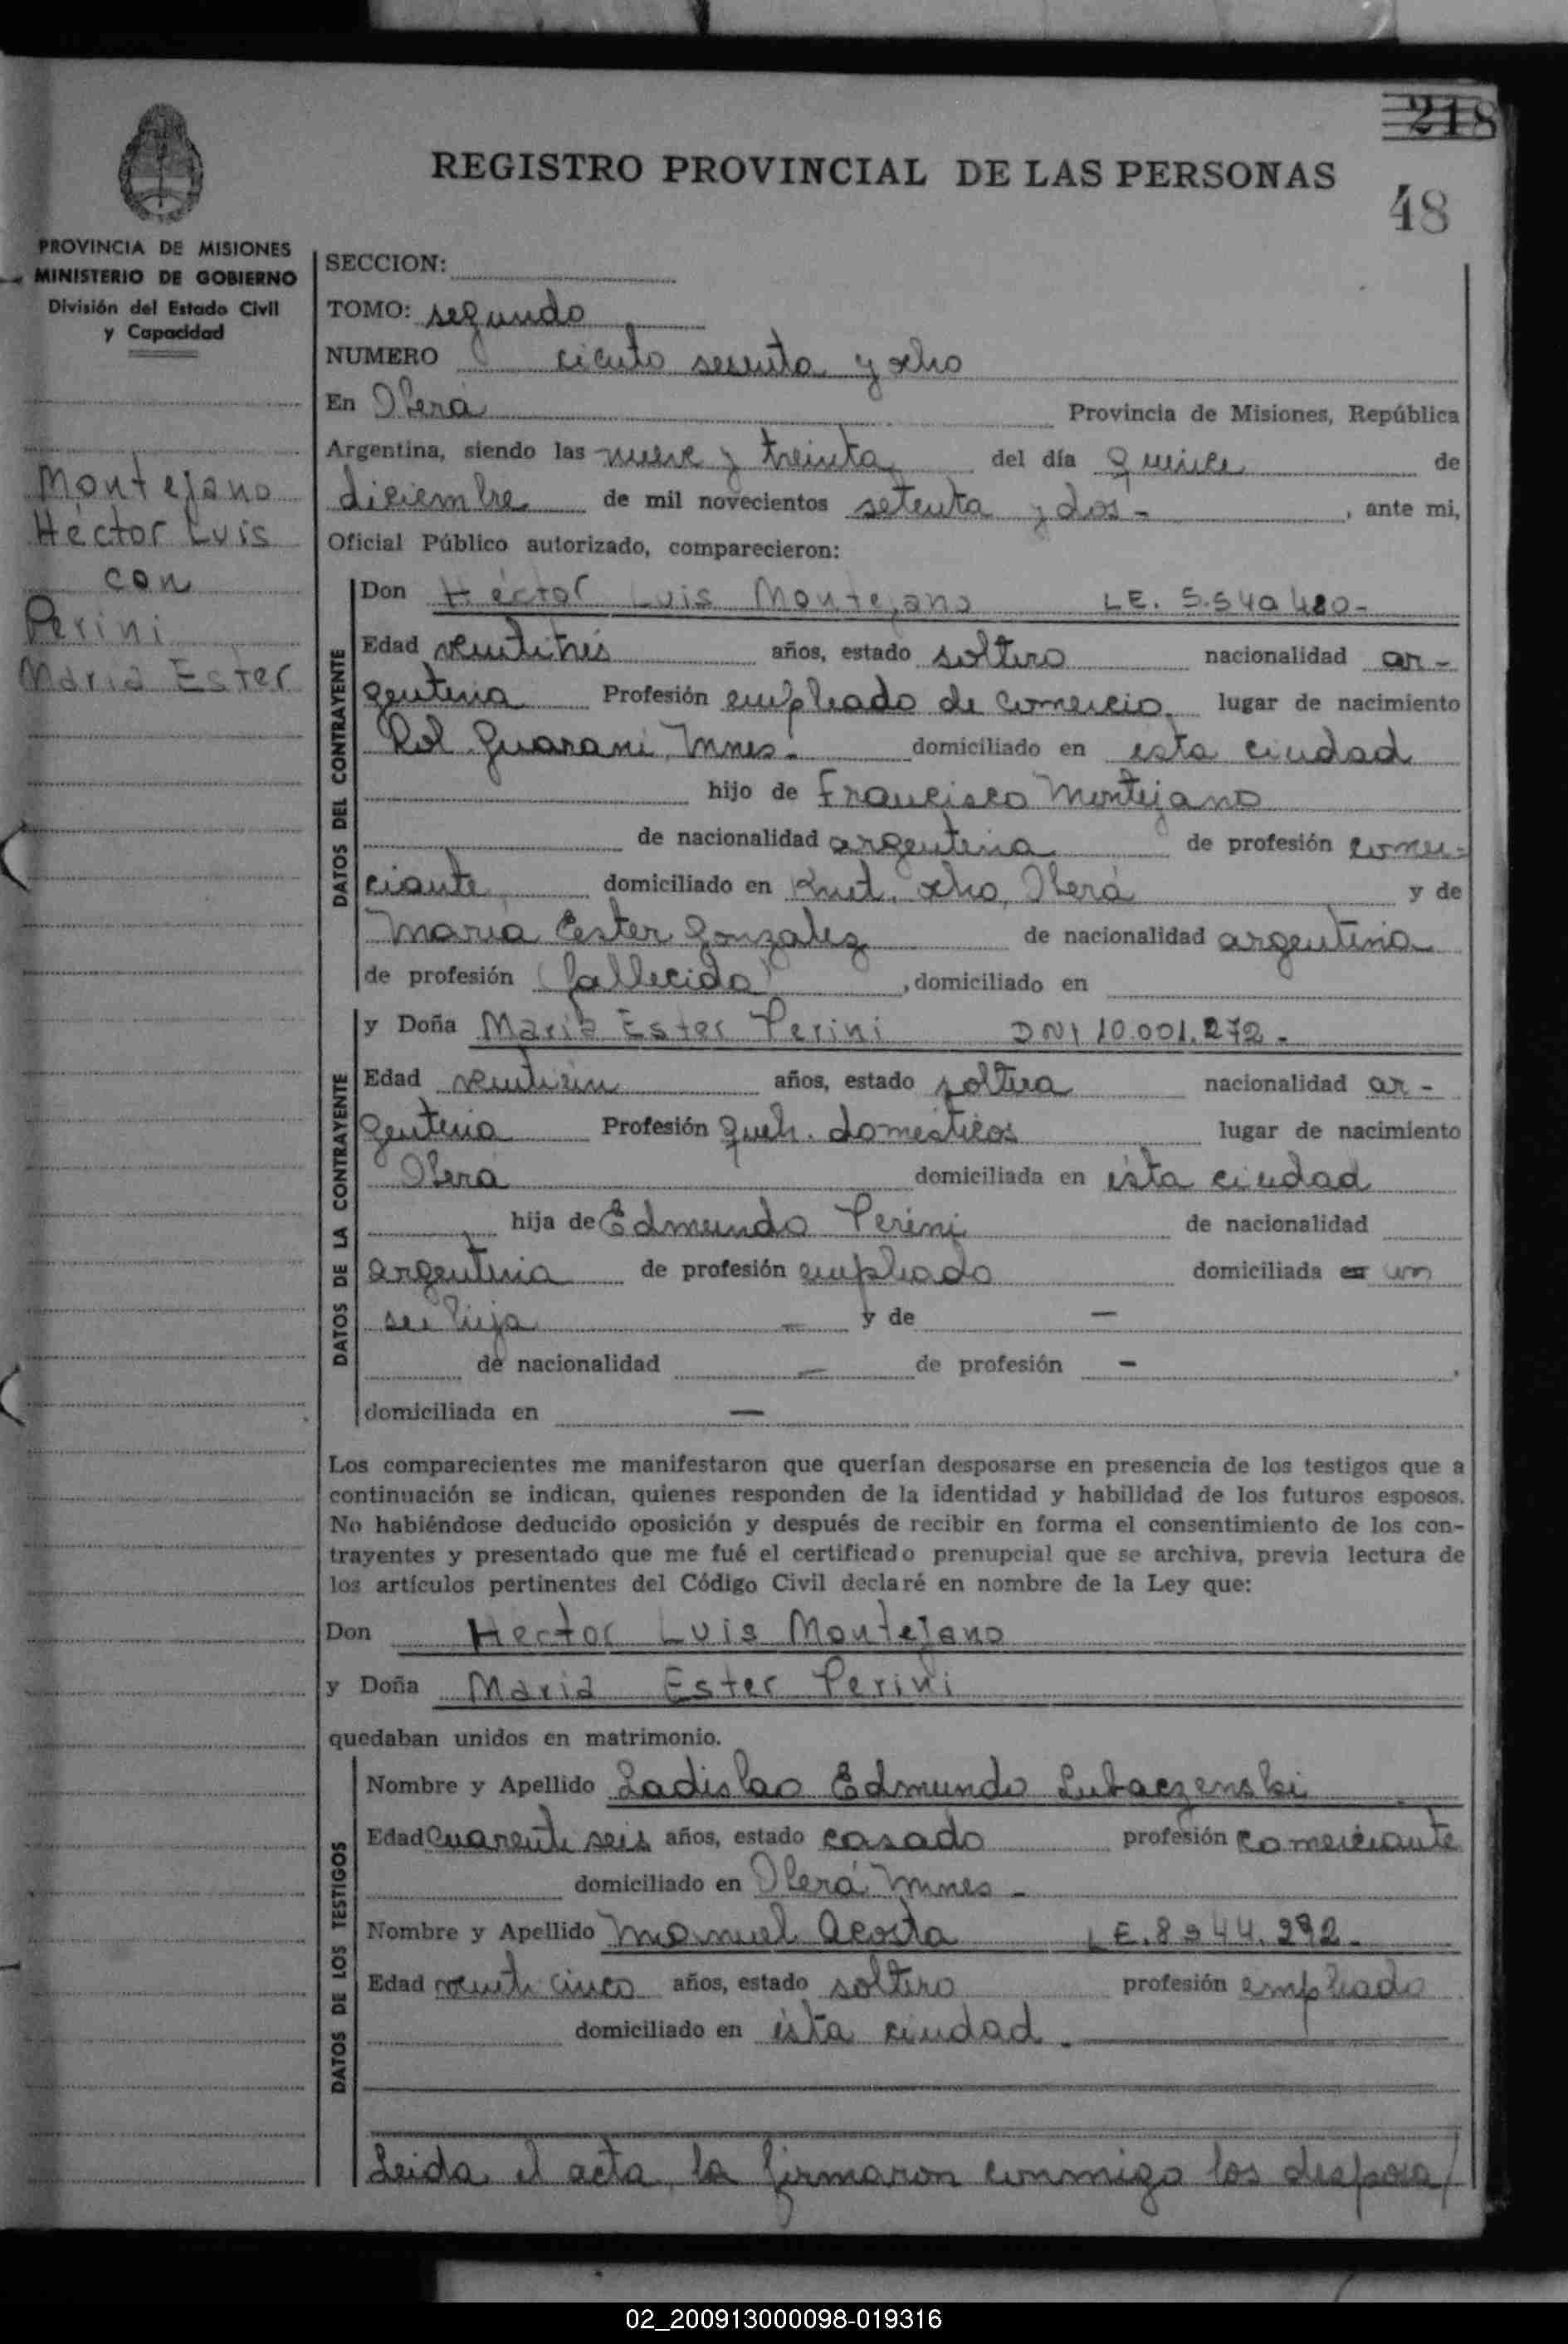 218
REGISTRO PROVINCIAL DE LAS PERSONAS
48
PROVINCIA DE MISIONES
MINISTERIO DE GOBIERNO
División del Estado Civil
y Capacidad
Montejano
Héctor Luis
con
Perini
María Ester
SECCION:
TOMO: segundo
NUMERO ciento sesenta y ocho
En Oberá Provincia de Misiones, República
Argentina, siendo las nueve y treinta del día quince de
diciembre de mil novecientos setenta y dos- , ante mi,
Oficial Público autorizado, comparecieron:
DATOS DEL CONTRAYENTE
Don Héctor Luis Montejano LE. 5.540.480-
Edad veintitrés años, estado soltero nacionalidad ar-
gentina Profesión empleado de comercio, lugar de nacimiento
Col. Guaraní, Mnes.- domiciliado en ésta ciudad
hijo de Francisco Montejano
de nacionalidad argentina de profesión comer-
ciante, domiciliado en Kmet. ocho, Oberá y de
María Ester Gonzalez de nacionalidad argentina
de profesión (fallecida) , domiciliado en
DATOS DE LA CONTRAYENTE
y Doña María Ester Perini DNI 10.001.272-
Edad veintiún años, estado soltera nacionalidad ar-
gentina Profesión queh. domésticos lugar de nacimiento
Oberá domiciliada en ésta ciudad
hija de Edmundo Perini de nacionalidad
argentina de profesión empleado domiciliada en con
su hija — y de —
de nacionalidad — de profesión — .
domiciliada en —
Los comparecientes me manifestaron que querían desposarse en presencia de los testigos que a
continuación se indican, quienes responden de la identidad y habilidad de los futuros esposos.
No habiéndose deducido oposición y después de recibir en forma el consentimiento de los con-
trayentes y presentado que me fué el certificado prenupcial que se archiva, previa lectura de
los artículos pertinentes del Código Civil declaré en nombre de la Ley que:
Don Hector Luis Montejano
y Doña María Ester Perini
quedaban unidos en matrimonio.
DATOS DE LOS TESTIGOS
Nombre y Apellido Ladislao Edmundo
Edad cuarenti seis años, estado casado profesión comerciante
domiciliado en Oberá Mnes-
Nombre y Apellido Manuel Acosta LE. 8344.292-
Edad veinti cinco años, estado soltero profesión empleado
domiciliado en ésta ciudad.
Leida el acta, la firmaron conmigo los desposa/
02_200913000098-019316